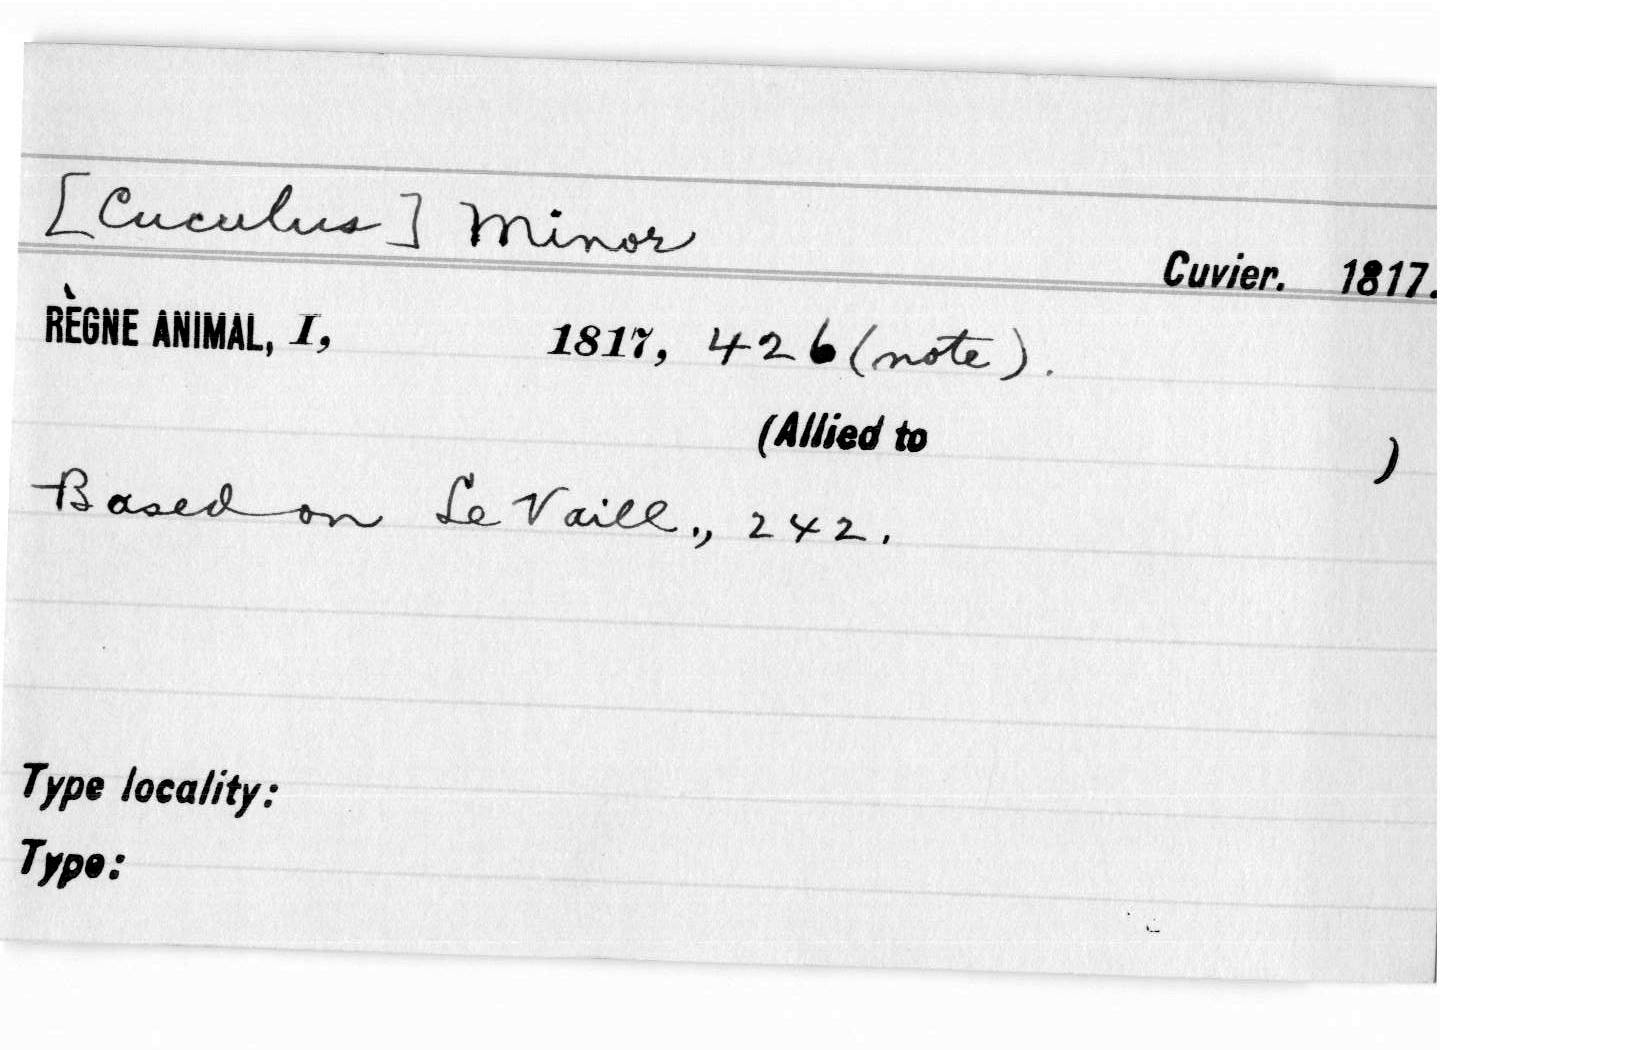 [Cuculus] Minor
Cuvier. 1817.
RÈGNE ANIMAL, I, 1817, 426 (note).
(Allied to )
Based on Le Vaill., 242.
Type locality:
Type: